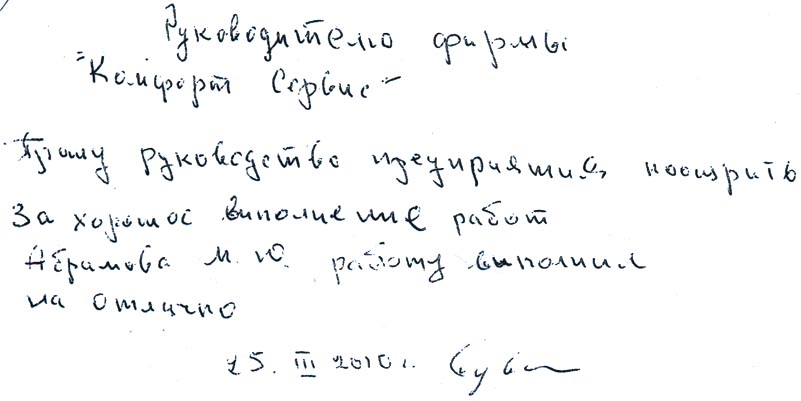 Руководителю фирмы
"Комфорт Сервис"
Прошу руководство предприятия поощрить
за хорошое виполнение работ
Абрамова М.Ю. работу виполнил
на отлично
25. III 2010 г.